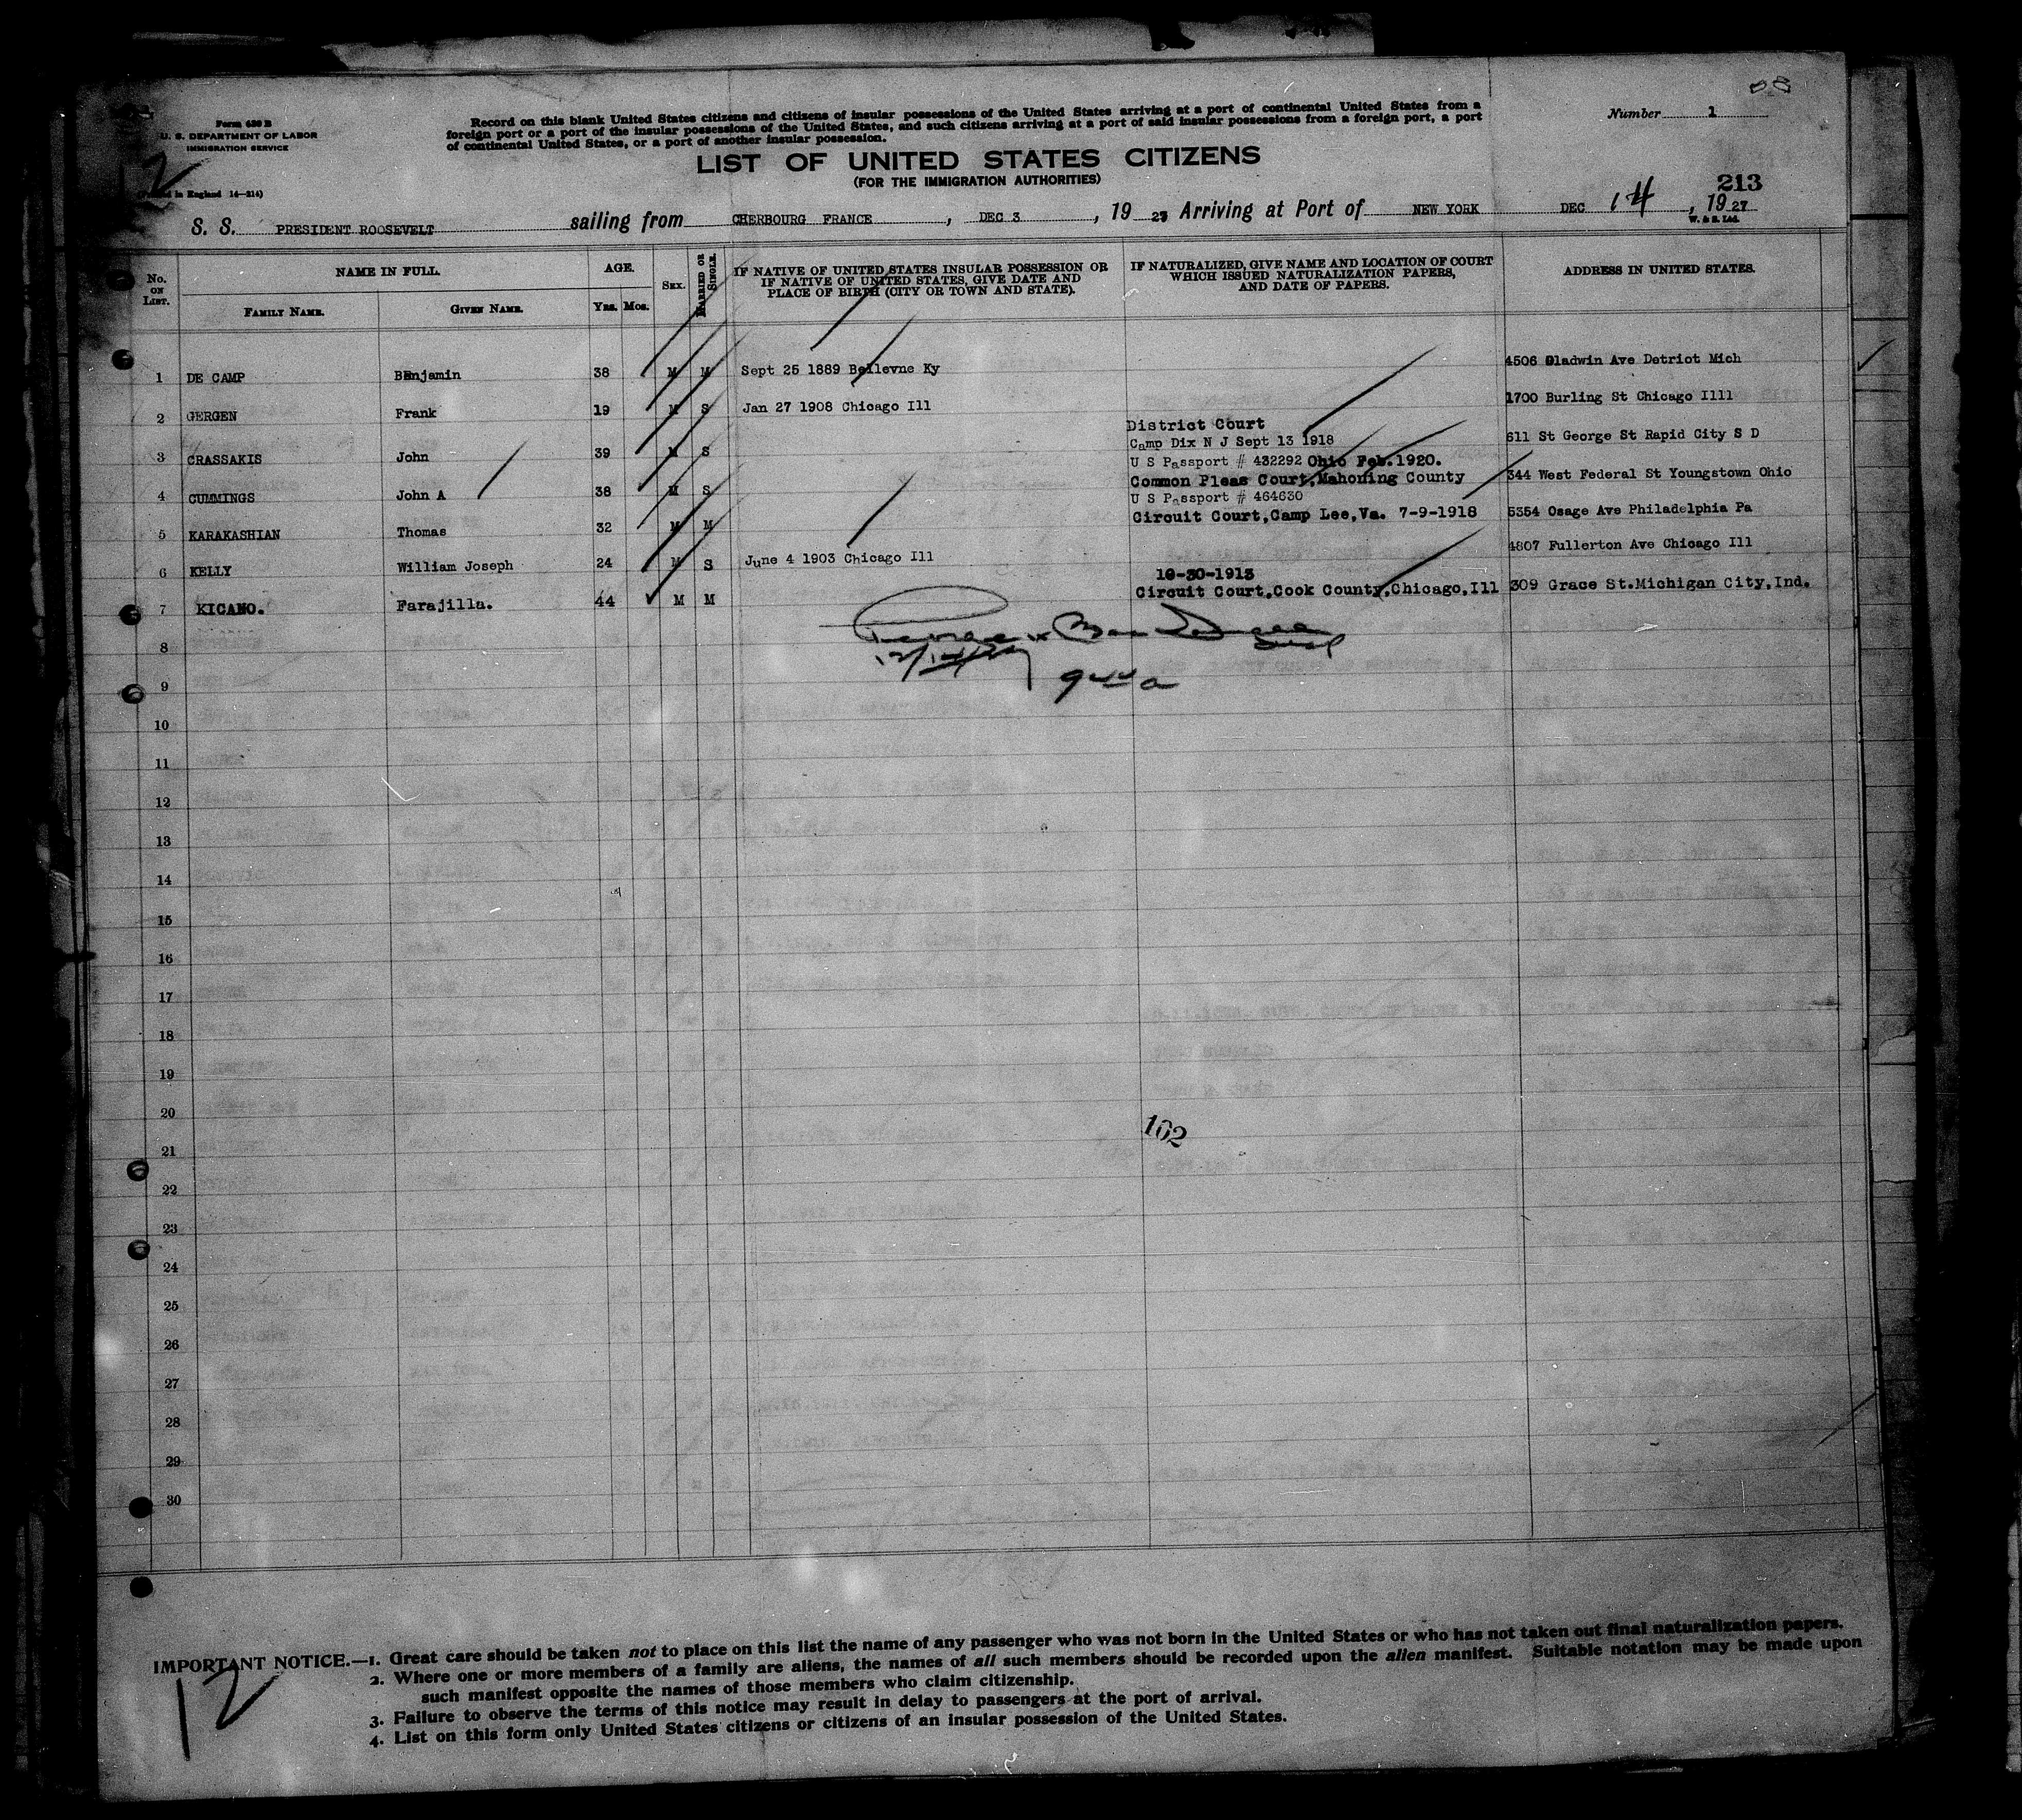 Form 630 B
U. S. DEPARTMENT OF LABOR
IMMIGRATION SERVICE
in England 14—214)
12
Record on this blank United States citizens and citizens of insular possessions of the United States arriving at a port of continental United States from a
foreign port or a port of the insular possessions of the United States, and such citizens arriving at a port of said insular possessions from a foreign port, a port
of continental United States, or a port of another insular possession.
Number 1
LIST OF UNITED STATES CITIZENS
(FOR THE IMMIGRATION AUTHORITIES)
213
S. S. PRESIDENT ROOSEVELT sailing from CHERBOURG FRANCE, DEC 3, 19 27 Arriving at Port of NEW YORK DEC 14, 19 27
W. & S. Ltd.
No. ON LIST.
NAME IN FULL.
FAMILY NAME.
GIVEN NAME.
AGE.
Yrs. Mos.
SEX.
MARRIED OR SINGLE.
IF NATIVE OF UNITED STATES INSULAR POSSESSION OR
IF NATIVE OF UNITED STATES, GIVE DATE AND
PLACE OF BIRTH (CITY OR TOWN AND STATE).
IF NATURALIZED, GIVE NAME AND LOCATION OF COURT
WHICH ISSUED NATURALIZATION PAPERS,
AND DATE OF PAPERS.
ADDRESS IN UNITED STATES.
1 DE CAMP Benjamin 38 M M Sept 25 1889 Bellevne Ky 4506 Gladwin Ave Detriot Mich
2 GERGEN Frank 19 M S Jan 27 1908 Chicago Ill 1700 Burling St Chicago Illl
3 CRASSAKIS John 39 M S District Court
Camp Dix N J Sept 13 1918 611 St George St Rapid City S D
U S Passport # 432292 Ohio Feb.1920.
4 CUMMINGS John A 38 M S Common Pleas Court,Mahoning County 344 West Federal St Youngstown Ohio
U S Passport # 464630
5 KARAKASHIAN Thomas 32 M M Circuit Court,Camp Lee,Va. 7-9-1918 5354 Osage Ave Philadelphia Pa
6 KELLY William Joseph 24 M S June 4 1903 Chicago Ill 4807 Fullerton Ave Chicago Ill
10-30-1913
7 KICANO. Farajilla. 44 M M Circuit Court,Cook County,Chicago,Ill 309 Grace St.Michigan City,Ind.
12/14/27
8
9
10
11
12
13
14
15
16
17
18
19
20
102
21
22
23
24
25
26
27
28
29
30
IMPORTANT NOTICE.—1. Great care should be taken not to place on this list the name of any passenger who was not born in the United States or who has not taken out final naturalization papers.
2. Where one or more members of a family are aliens, the names of all such members should be recorded upon the alien manifest. Suitable notation may be made upon
such manifest opposite the names of those members who claim citizenship.
3. Failure to observe the terms of this notice may result in delay to passengers at the port of arrival.
4. List on this form only United States citizens or citizens of an insular possession of the United States.
12